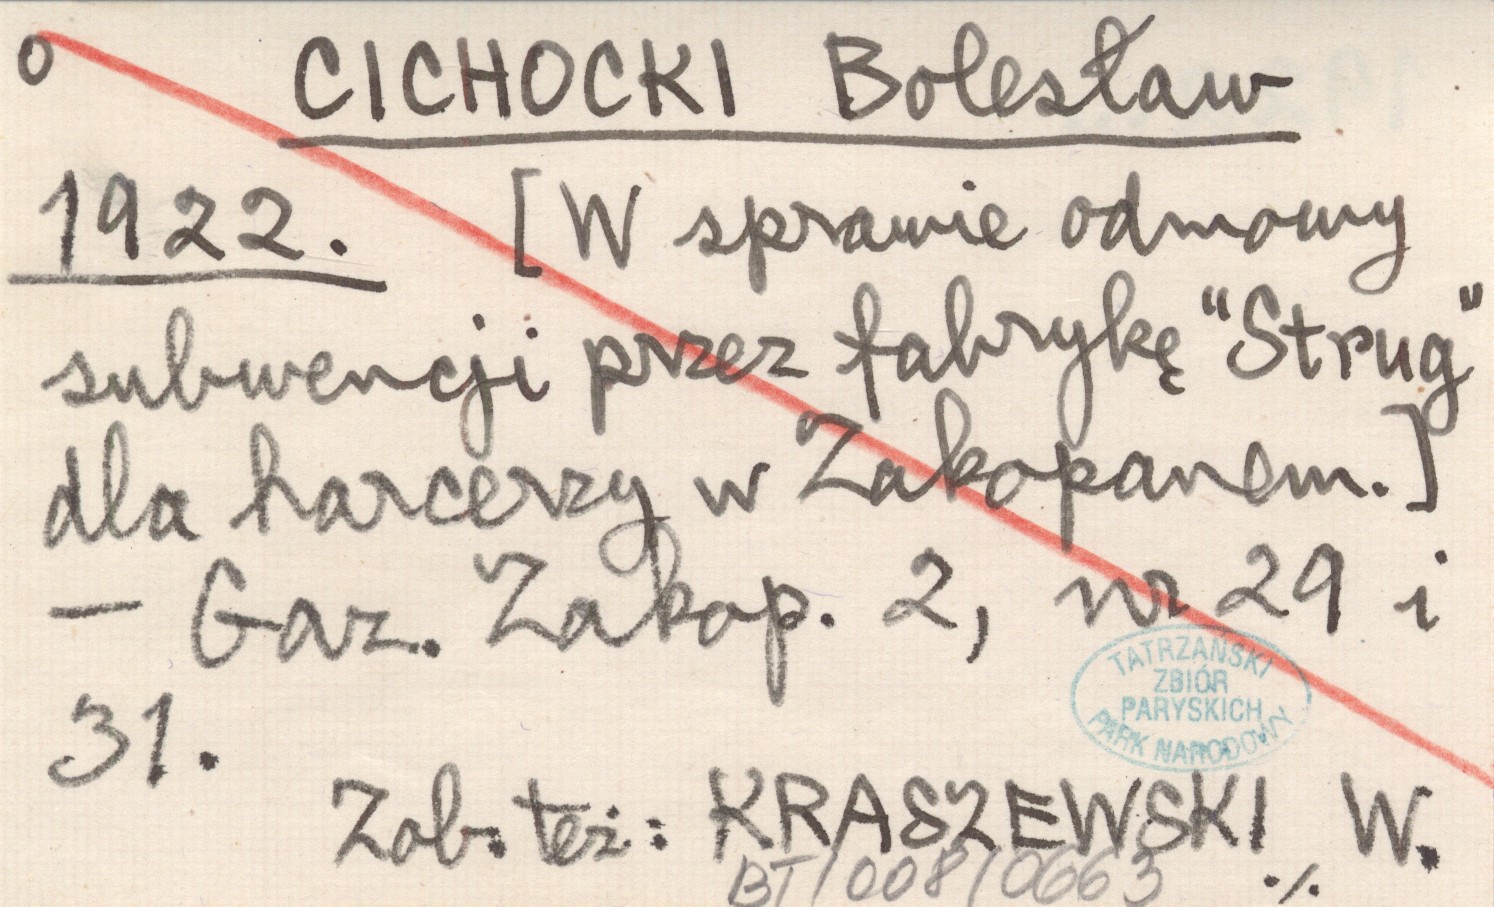 o CICHOCKI Bolesław
1922. [W sprawie odmowy
subwencji przez fabrykę "Strug"
dla harcerzy w Zakopanem.]
— Gaz. Zakop. 2, nr 29 i
31.
TATRZAŃSKI
ZBIÓR
PARYSKICH
PARK NARODOWY
Zob. też: KRASZEWSKI W.
BT/008/0663 ./.